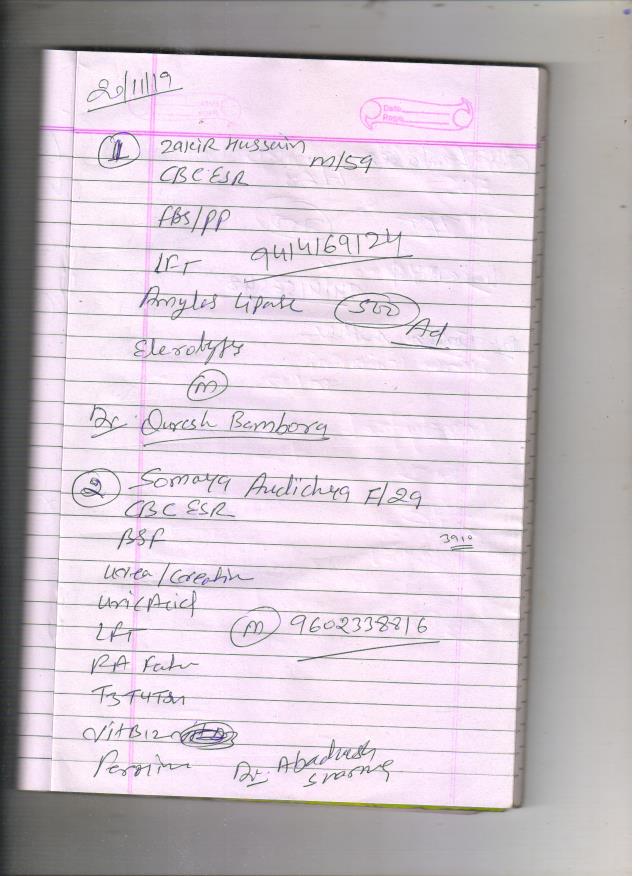 20/11/19
Date
Page
1 Zakir Hussain M/59
CBC ESR
FBS/PP
LFT 9414169124
Amylas Lipase 500 Ad
m
Dr. Quresh Bambora
2 Somaya Audichya F/29
CBC ESR
BSF 3910
Urea/Creatin
Uric Acid
LFT m 9602338816
RA Factr
T3 T4 TSH
Vit B12
Dr. Abadhesh
Sharma